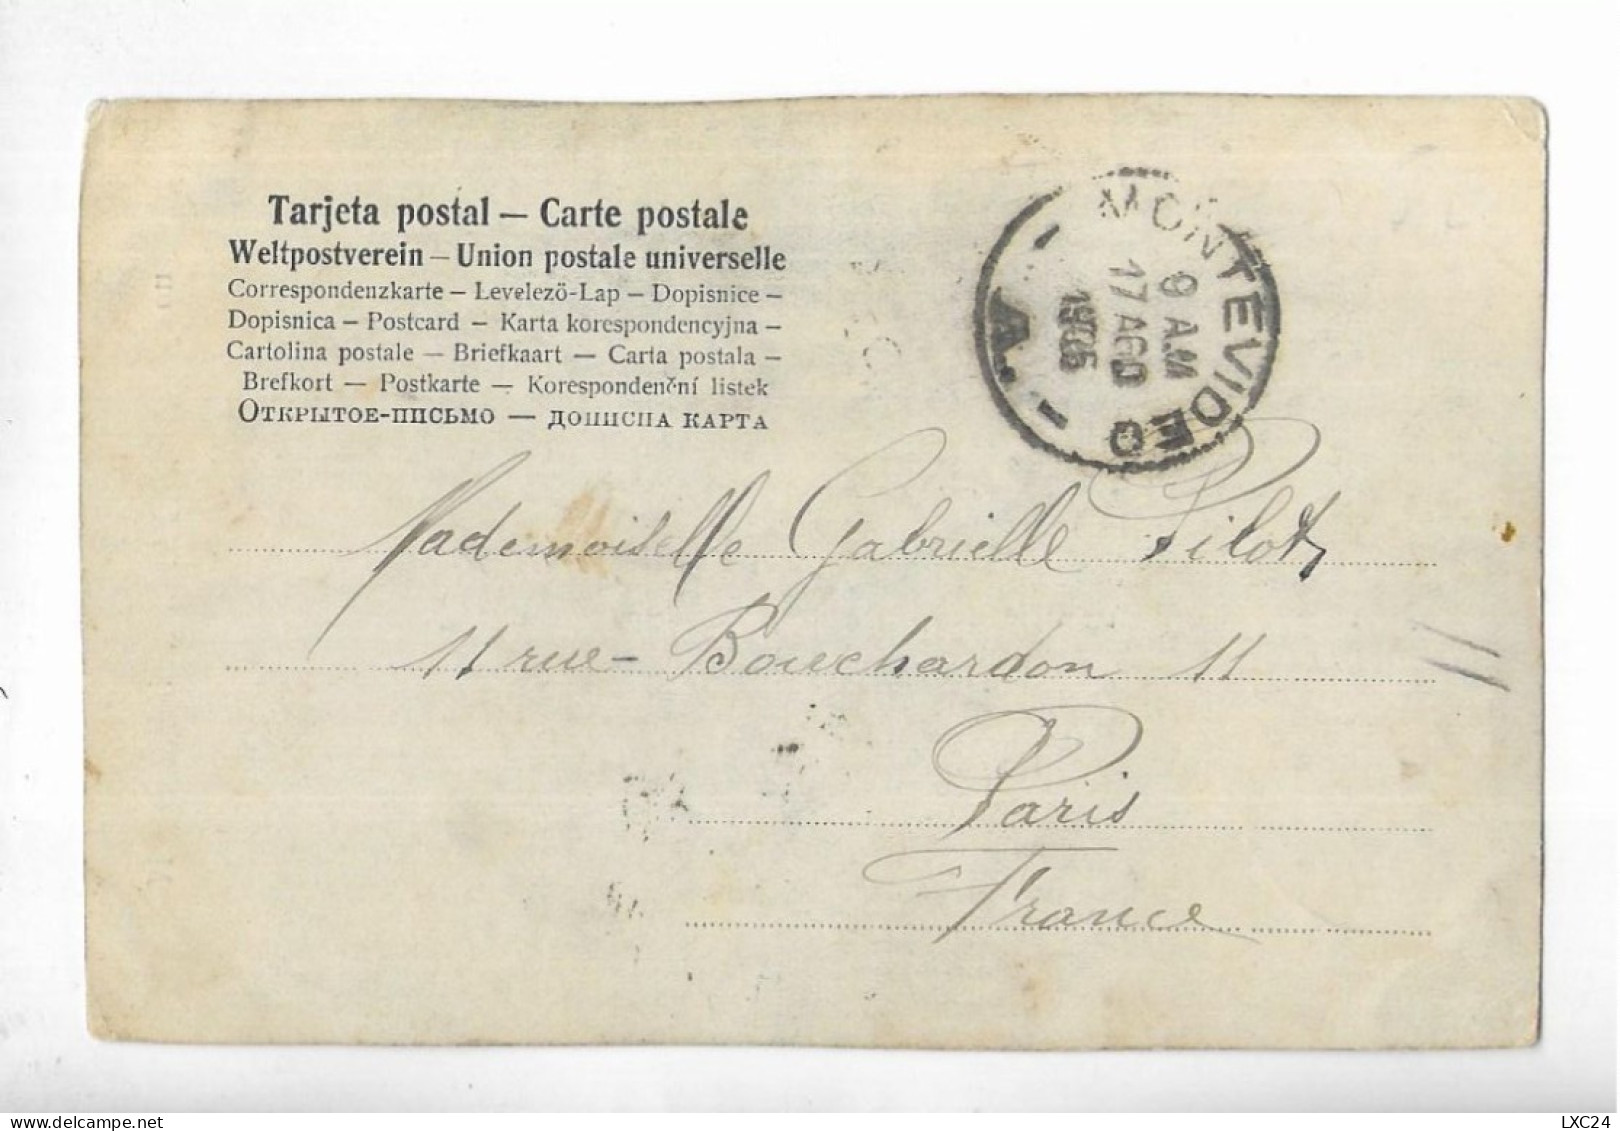 Tarjeta postal — Carte postale
Weltpostverein — Union postale universelle
Correspondenzkarte — Levelező-Lap — Dopisnice —
Dopisnica — Postcard — Karta korespondencyjna —
Cartolina postale — Briefkaart — Carta postala —
Brefkort — Postkarte — Korespondenční listek
ОТКРЫТОЕ-ПИСЬМО — ДОПИСНА КАРТА
MONTEVIDEO
9 A.M
17 AGO
1905
A.
Mademoiselle Gabrielle Pilot
11 rue - Bouchardon 11
Paris
France
delcampe.net
LXC24